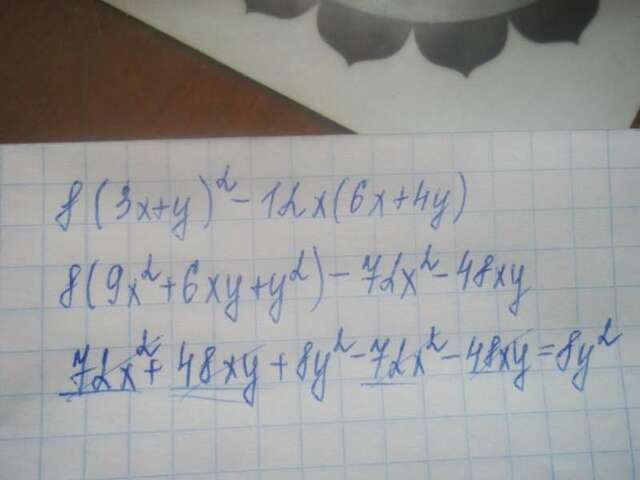 8(3x+y)²-12x(6x+4y)
8(9x²+6xy+y²)-72x²-48xy
72x²+48xy+8y²-72x²-48xy=8y²